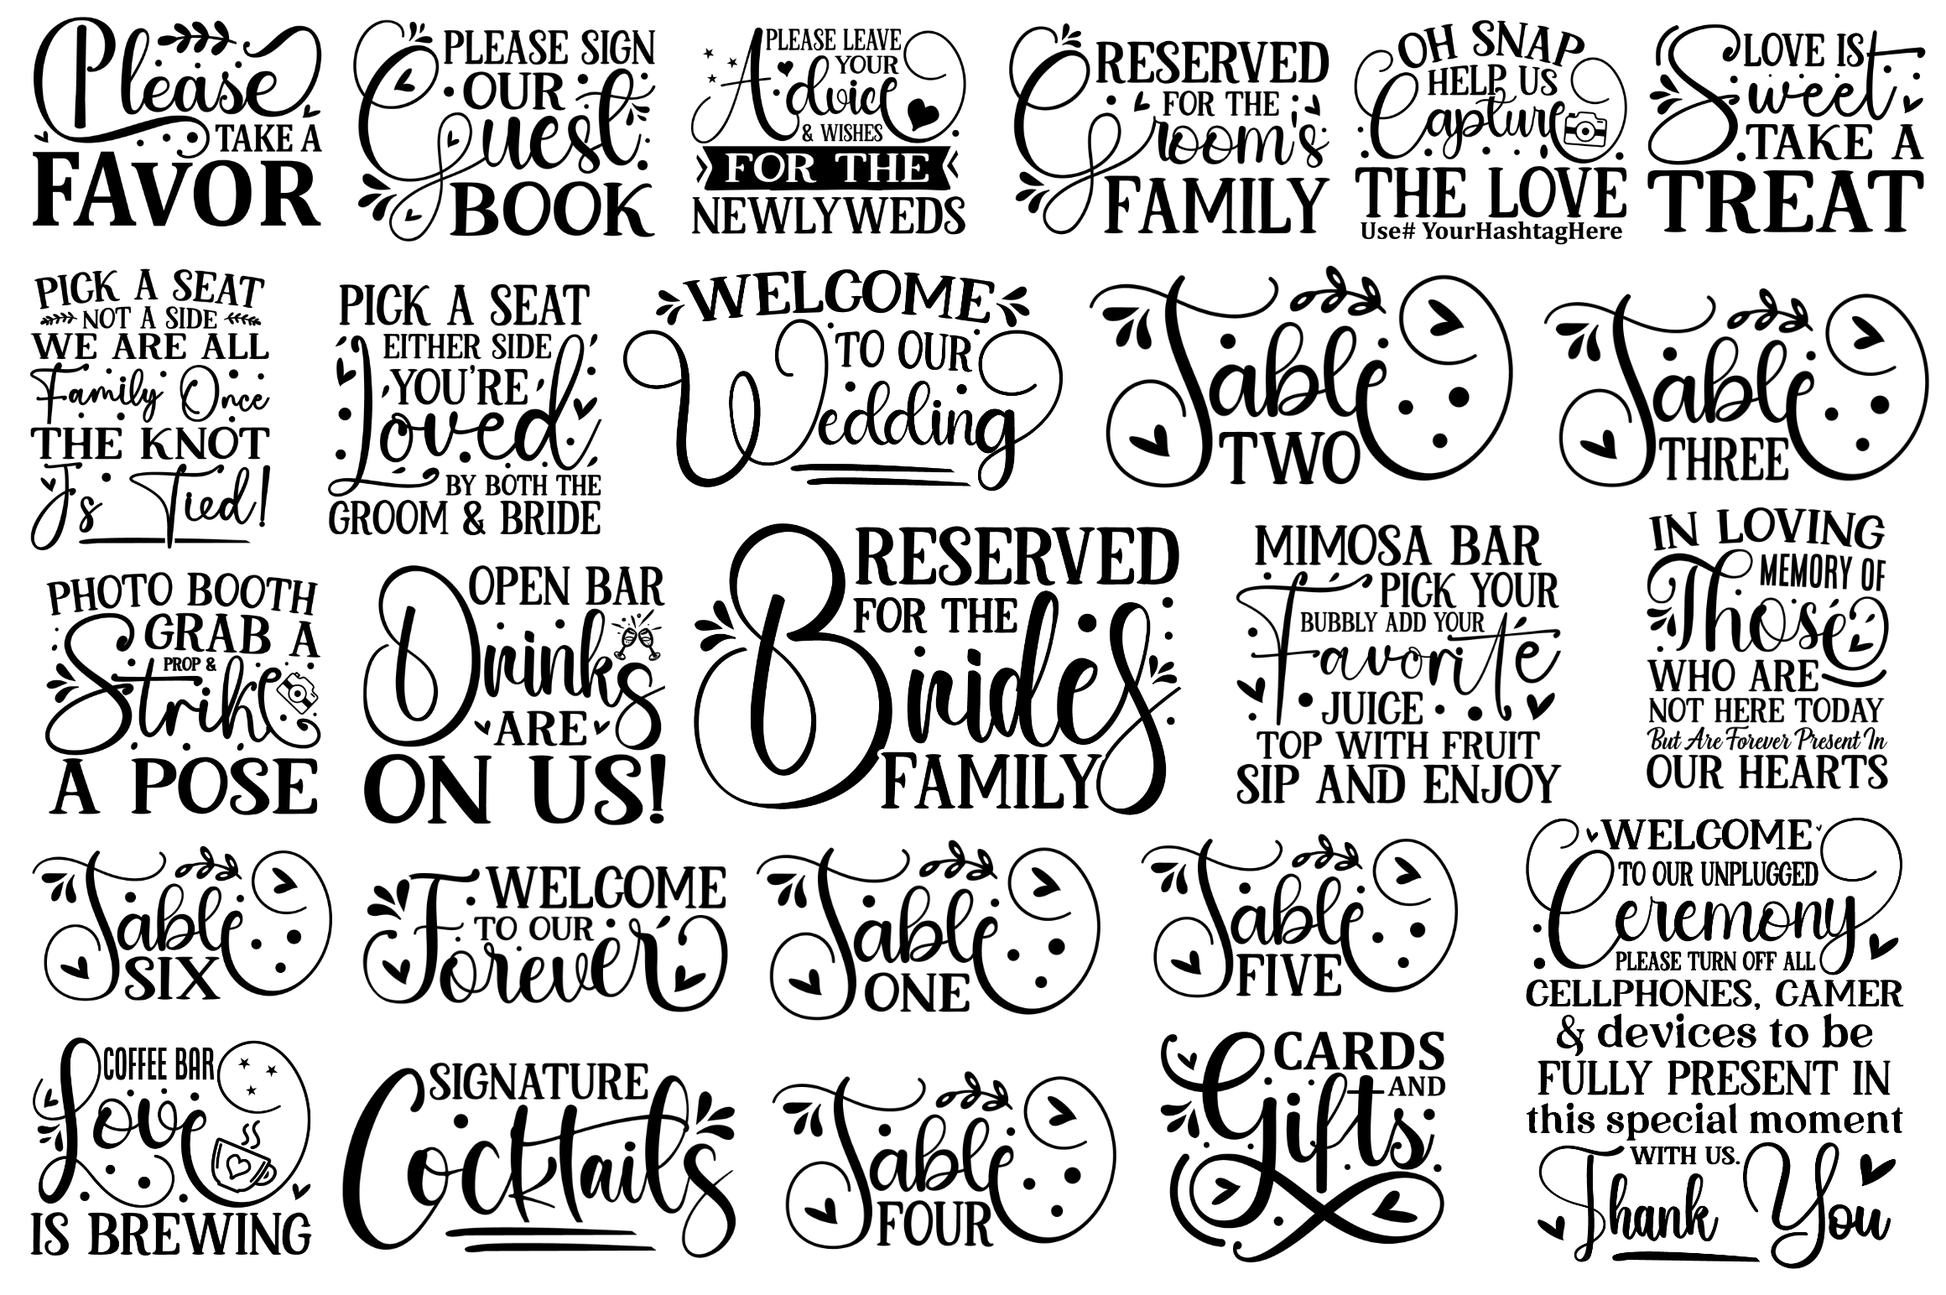 Please
TAKE A
FAVOR
PLEASE SIGN
OUR
Guest
BOOK
PLEASE LEAVE
YOUR
Advice
& WISHES
FOR THE
NEWLYWEDS
RESERVED
FOR THE
Groom's
FAMILY
OH SNAP
HELP US
Capture
THE LOVE
Use# YourHashtagHere
LOVE IS
Sweet
TAKE A
TREAT
PICK A SEAT
NOT A SIDE
WE ARE ALL
Family Once
THE KNOT
Is Tied!
PICK A SEAT
EITHER SIDE
YOU'RE
Loved
BY BOTH THE
GROOM & BRIDE
WELCOME
TO OUR
Wedding
Table
TWO
Table
THREE
PHOTO BOOTH
GRAB A
PROP &
Strike
A POSE
OPEN BAR
Drinks
ARE
ON US!
RESERVED
FOR THE
Brides
FAMILY
MIMOSA BAR
PICK YOUR
BUBBLY ADD YOUR
Favorite
JUICE
TOP WITH FRUIT
SIP AND ENJOY
IN LOVING
MEMORY OF
Those
WHO ARE
NOT HERE TODAY
But Are Forever Present In
OUR HEARTS
Table
SIX
WELCOME
TO OUR
Forever
Table
ONE
Table
FIVE
WELCOME
TO OUR UNPLUGGED
Ceremony
PLEASE TURN OFF ALL
CELLPHONES, CAMER
& devices to be
FULLY PRESENT IN
this special moment
WITH US.
Thank You
COFFEE BAR
Love
IS BREWING
SIGNATURE
Cocktails
Table
FOUR
CARDS
AND
Gifts